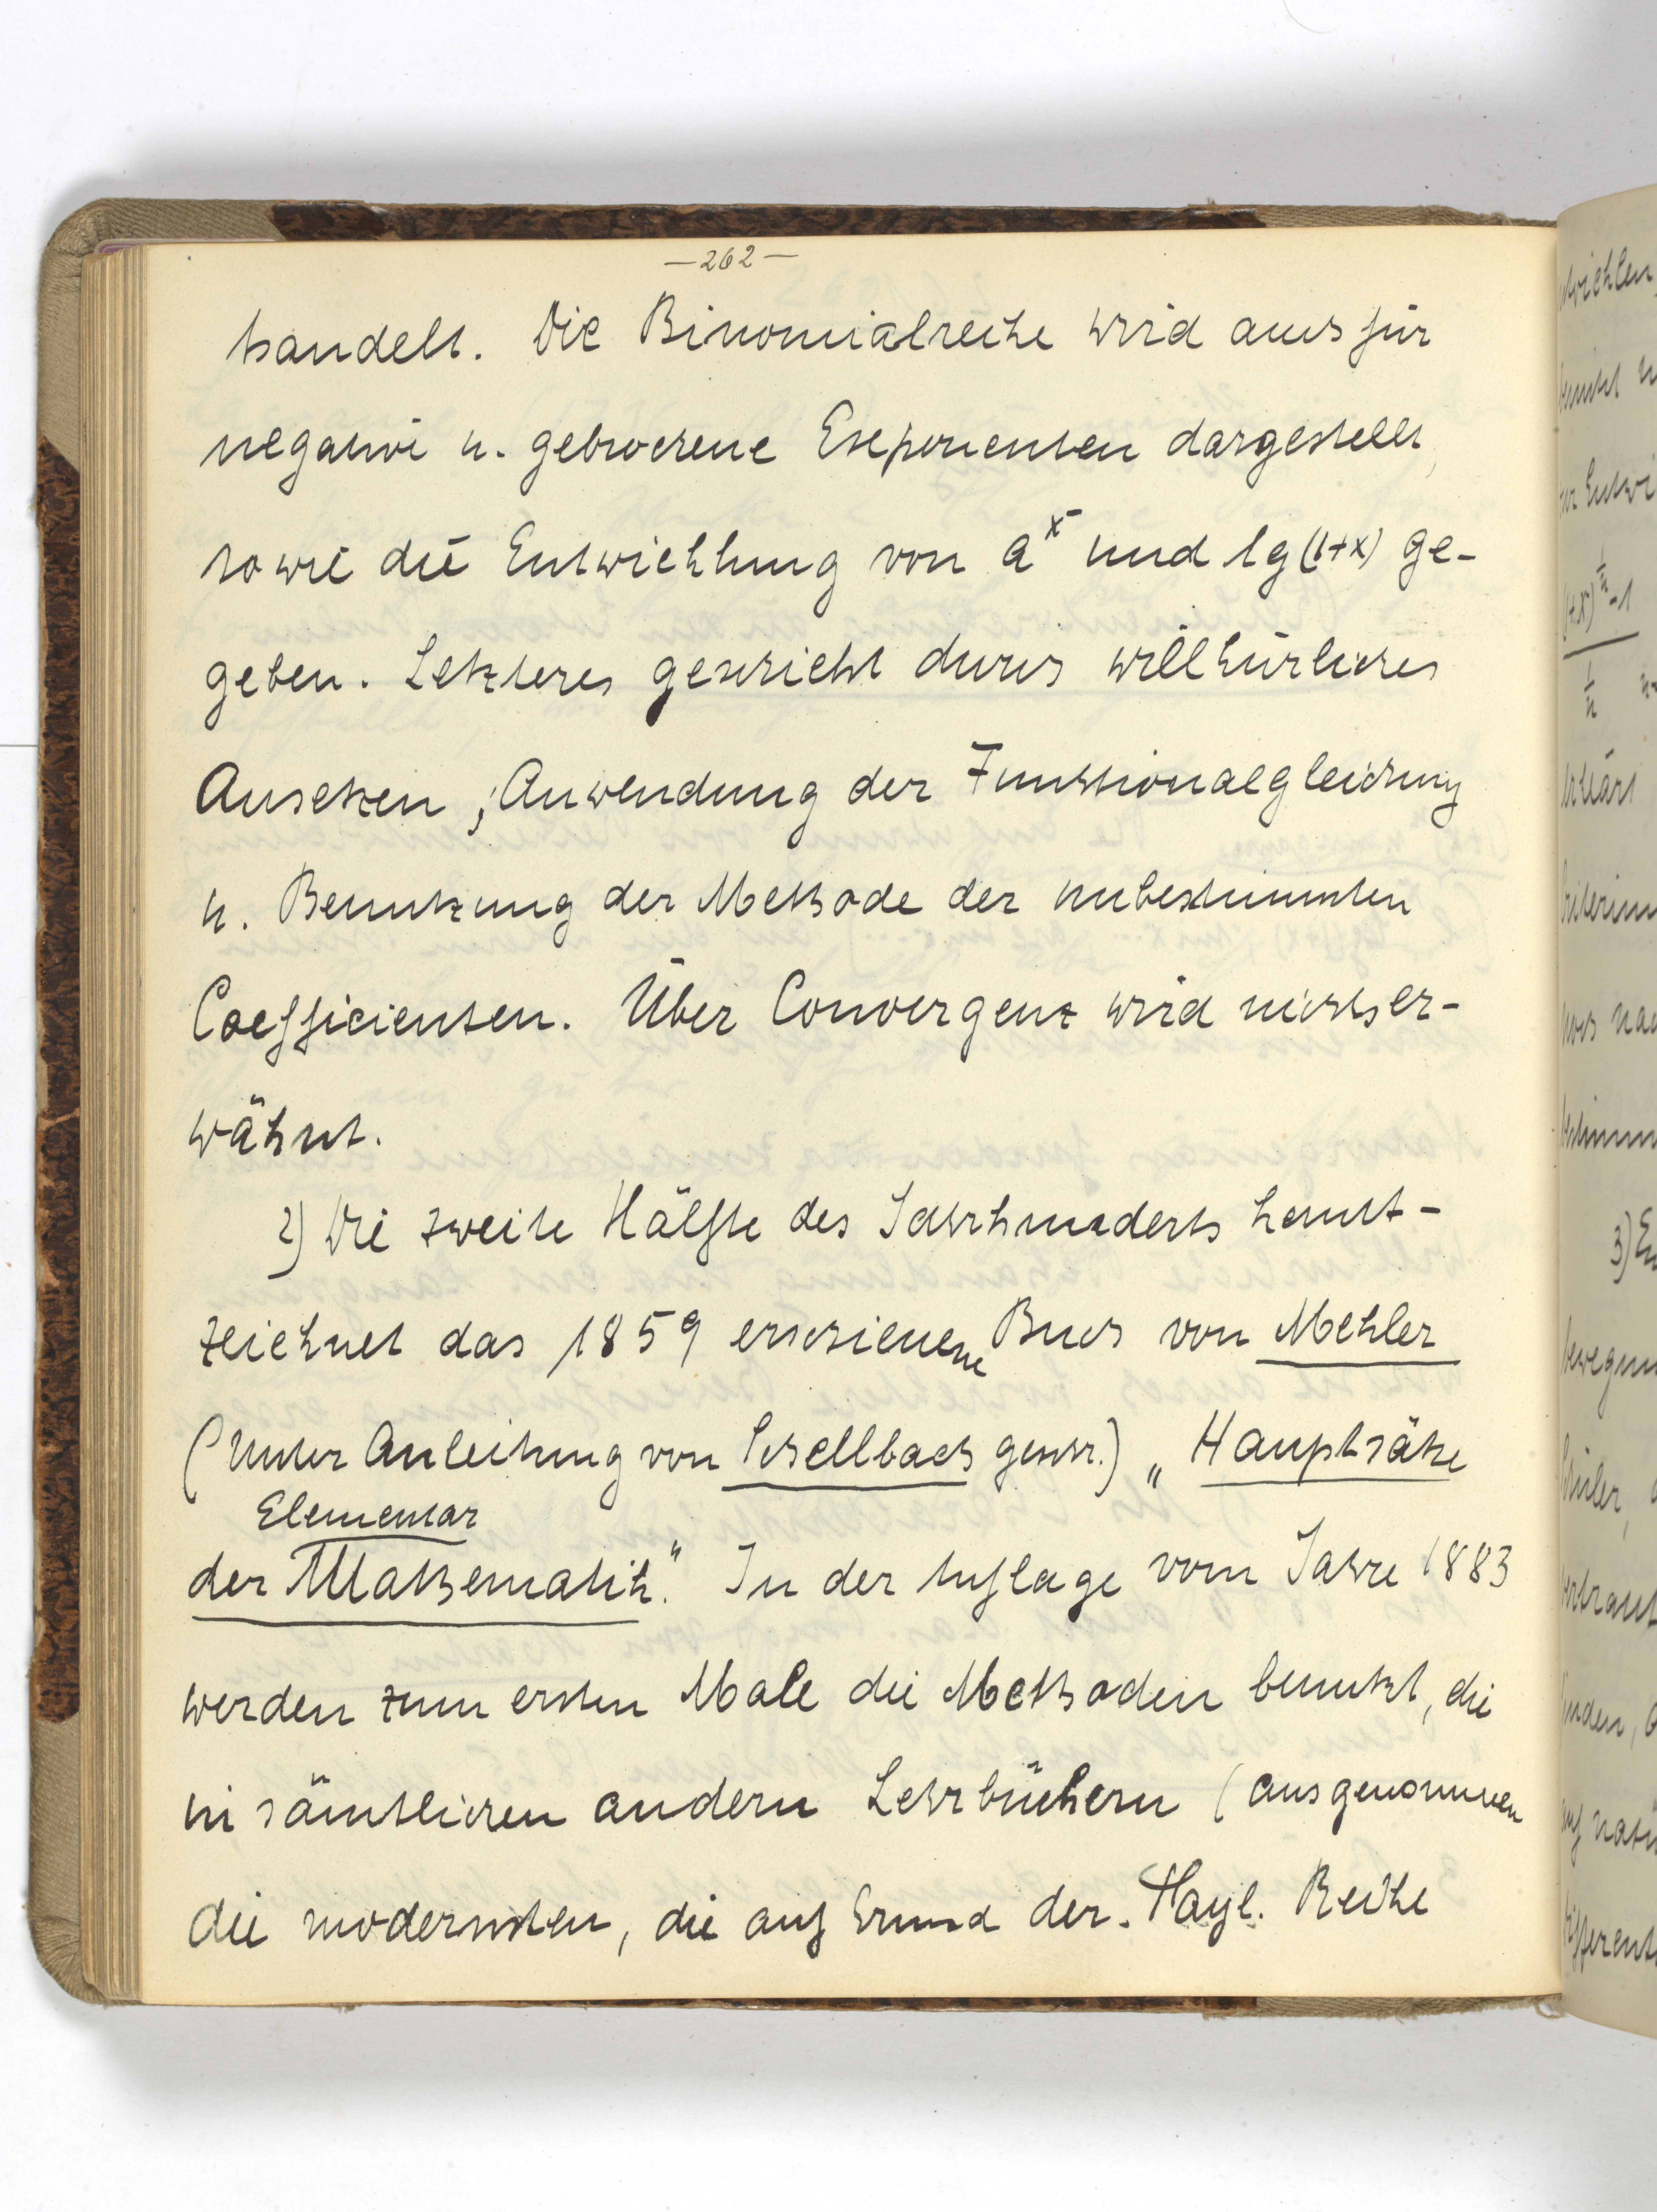 —262—
handelt. Die Binomialreihe wird auch für
negative u. gebrochene Exponenten dargestellt,
sowie die Entwicklung von a^x und lg(1+x) ge-
geben. Letzteres geschieht durch willkürliches
Ansetzen, Anwendung der Funktionalgleichung
u. Benutzung der Methode der unbestimmten
Coefficienten. Über Convergenz wird nichts er-
wähnt.
2) Die zweite Hälfte des Jahrhunderts kennt-
zeichnet das 1859 erschienene Buch von Mehler
(unter Anleitung von Schellbach geschr.) „Hauptsätze
Elementar
der Mathematik." In der Auflage vom Jahre 1883
werden zum ersten Male die Methoden benutzt, die
in sämtlichen andern Lehrbüchern (ausgenommen
die modernsten, die auf Grund der Tayl. Reihe
(1+x)^{1/n} -1
1/n
3)